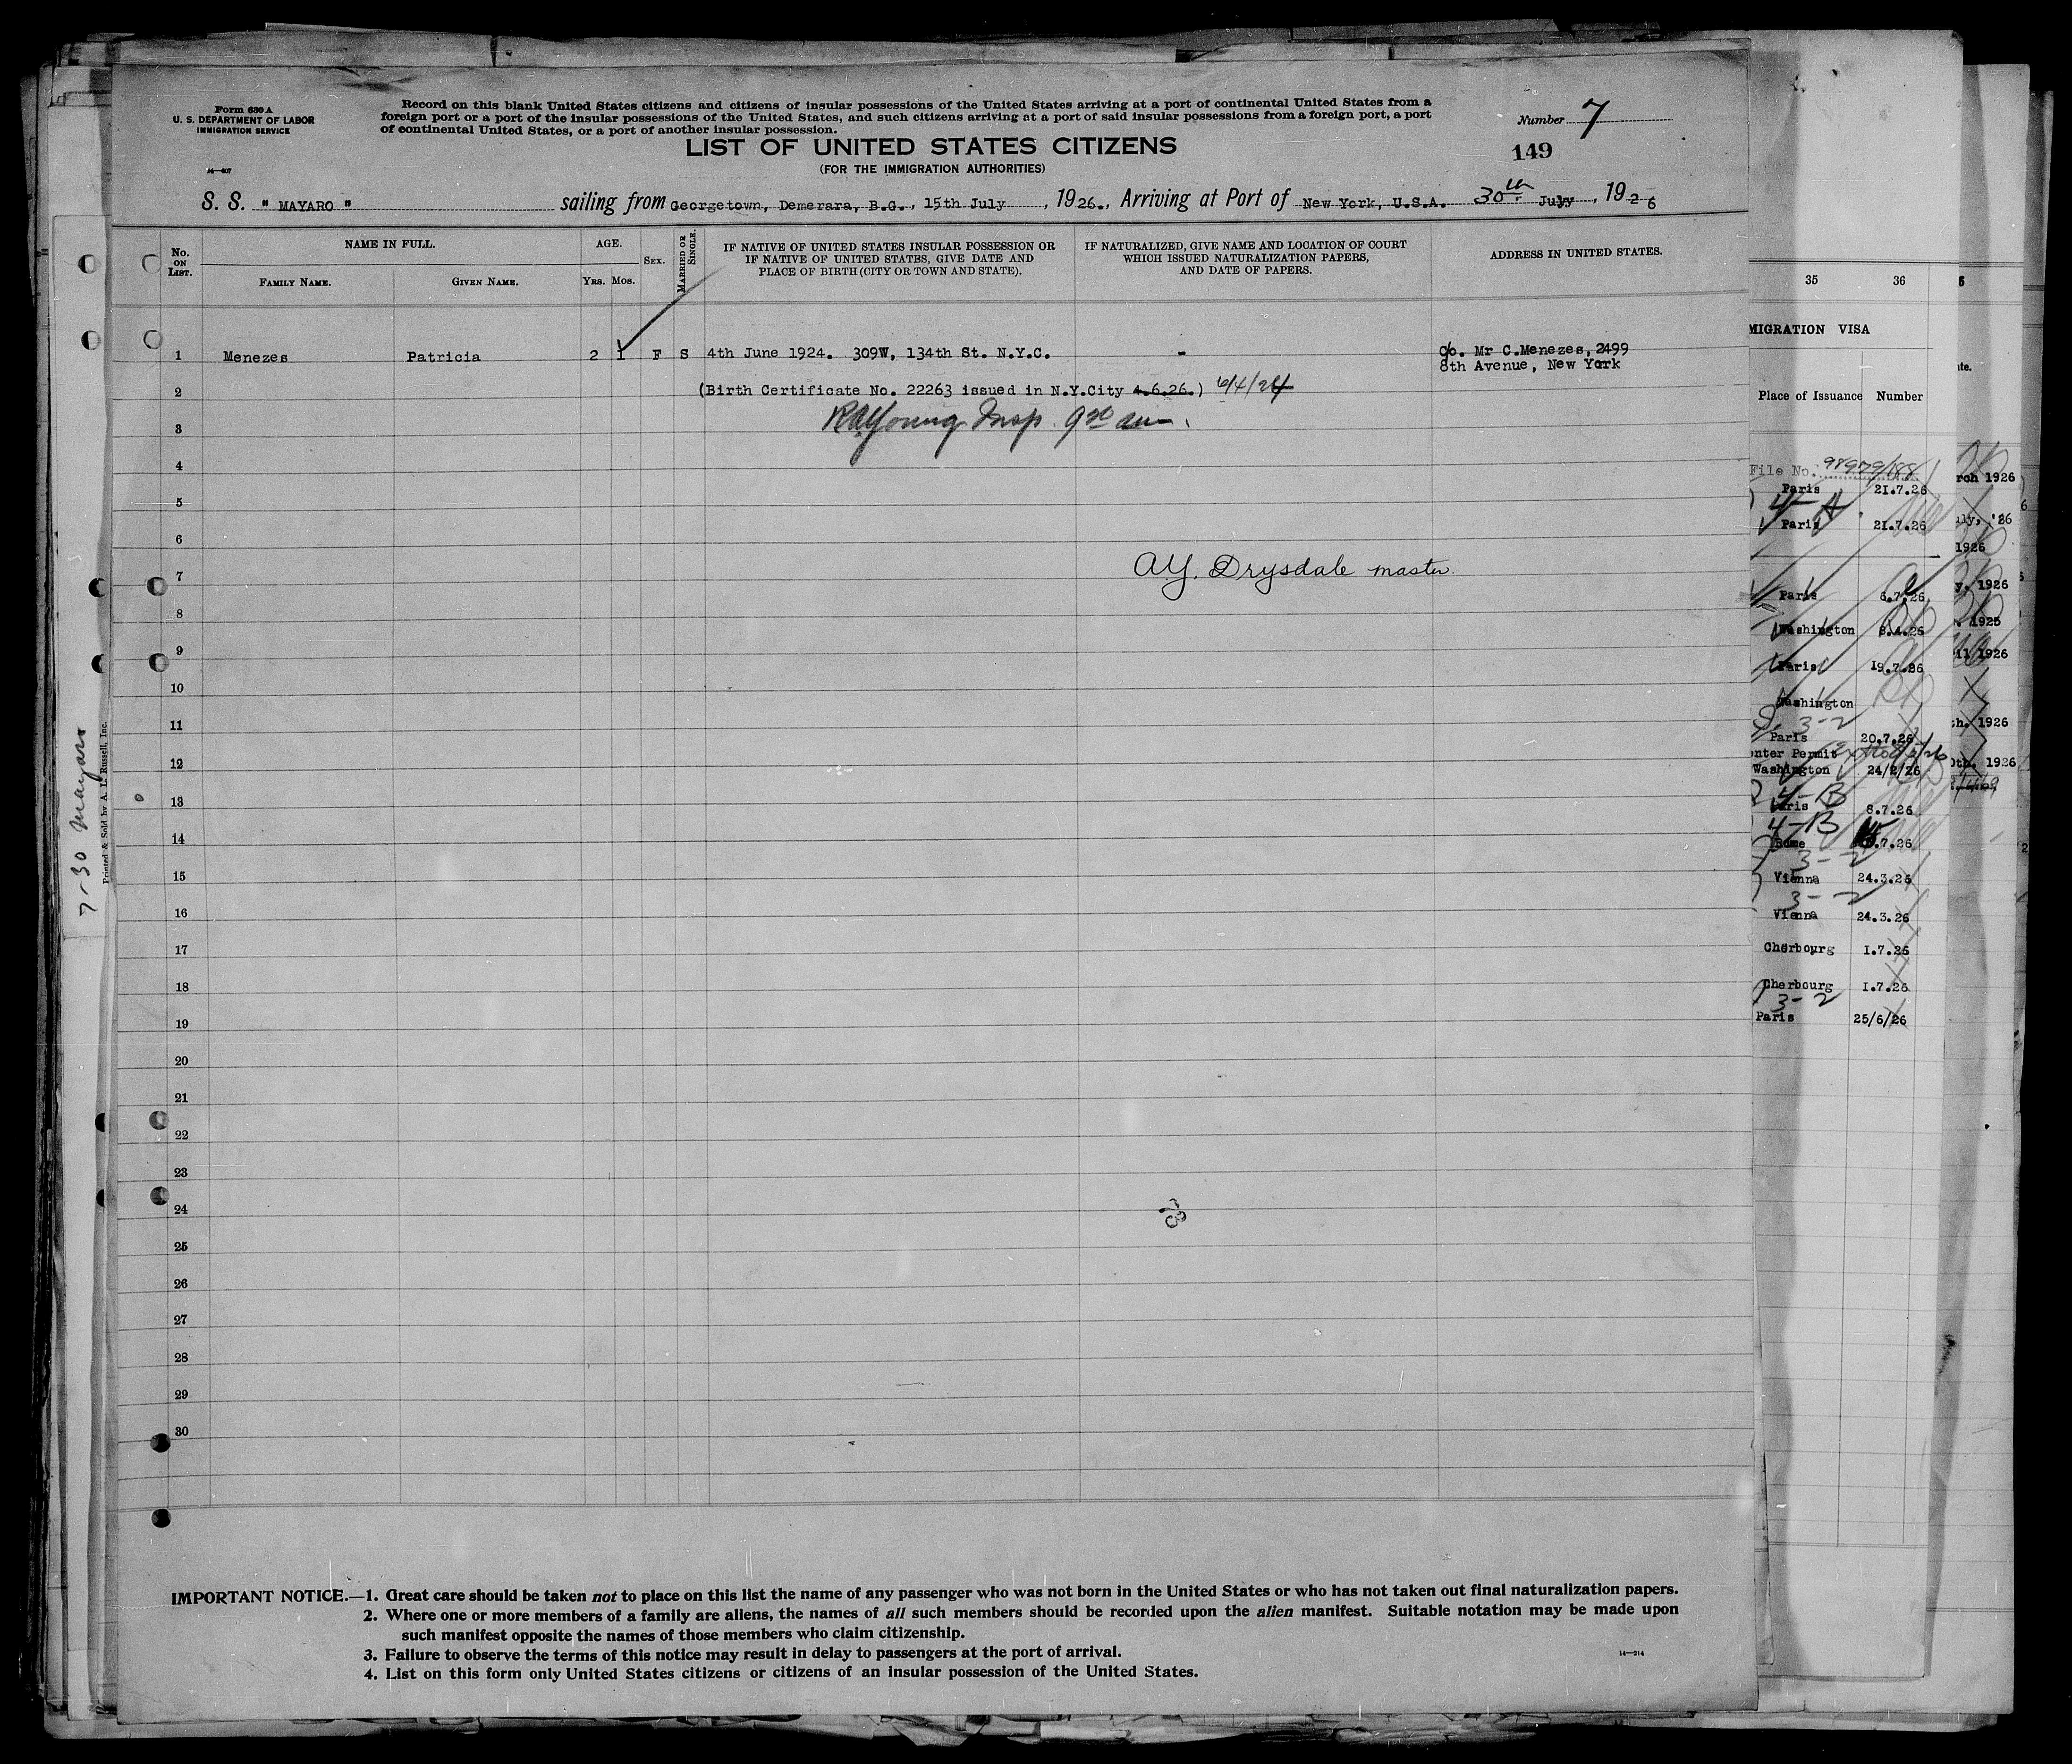 Form 630 A
U. S. DEPARTMENT OF LABOR
IMMIGRATION SERVICE
14—407
Record on this blank United States citizens and citizens of insular possessions of the United States arriving at a port of continental United States from a
foreign port or a port of the insular possessions of the United States, and such citizens arriving at a port of said insular possessions from a foreign port, a port
of continental United States, or a port of another insular possession.
Number 7
149
LIST OF UNITED STATES CITIZENS
(FOR THE IMMIGRATION AUTHORITIES)
S. S. " MAYARO " sailing from Georgetown, Demerara, B.G., 15th July, 1926., Arriving at Port of New York, U.S.A. 30th July, 1926
No. ON LIST.
NAME IN FULL.
FAMILY NAME.
GIVEN NAME.
AGE.
YRS. MOS.
SEX.
MARRIED OR SINGLE.
IF NATIVE OF UNITED STATES INSULAR POSSESSION OR
IF NATIVE OF UNITED STATES, GIVE DATE AND
PLACE OF BIRTH (CITY OR TOWN AND STATE).
IF NATURALIZED, GIVE NAME AND LOCATION OF COURT
WHICH ISSUED NATURALIZATION PAPERS,
AND DATE OF PAPERS.
ADDRESS IN UNITED STATES.
1 Menezes Patricia 2 1 F S 4th June 1924. 309W, 134th St. N.Y.C. - c/o. Mr C.Menezes, 2499
8th Avenue, New York
2 (Birth Certificate No. 22263 issued in N.Y.City 4.6.26.) 6/4/24
3 RAYoung Insp. 9 30 am.
4
5
6
7 A.Y. Drysdale master
8
9
10
11
12
13
14
15
16
17
18
19
20
21
22
23
24
25
26
27
28
29
30
IMPORTANT NOTICE.—1. Great care should be taken not to place on this list the name of any passenger who was not born in the United States or who has not taken out final naturalization papers.
2. Where one or more members of a family are aliens, the names of all such members should be recorded upon the alien manifest. Suitable notation may be made upon
such manifest opposite the names of those members who claim citizenship.
3. Failure to observe the terms of this notice may result in delay to passengers at the port of arrival.
4. List on this form only United States citizens or citizens of an insular possession of the United States.
14—214
7-30 Mayaro
Printed & Sold by A. L. Russell, Inc.
35 36
MIGRATION VISA
Place of Issuance Number
File No. 98979/188
Paris 21.7.26
4-A
Paris 21.7.26
Paris 6.7.26
Washington 8.4.26
Paris 19.7.26
Washington
3-2
Paris 20.7.26
enter Permit
Washington 24/2/26
4-B
Paris 8.7.26
4-B
Rome .7.26
3-2
Vienna 24.3.26
3-2
Vienna 24.3.26
Cherbourg 1.7.26
Cherbourg 1.7.26
3-2
Paris 25/6/26
rch 1926
uly, '26
1926
y, 1926
. 1925
il 1926
th. 1926
0th. 1926